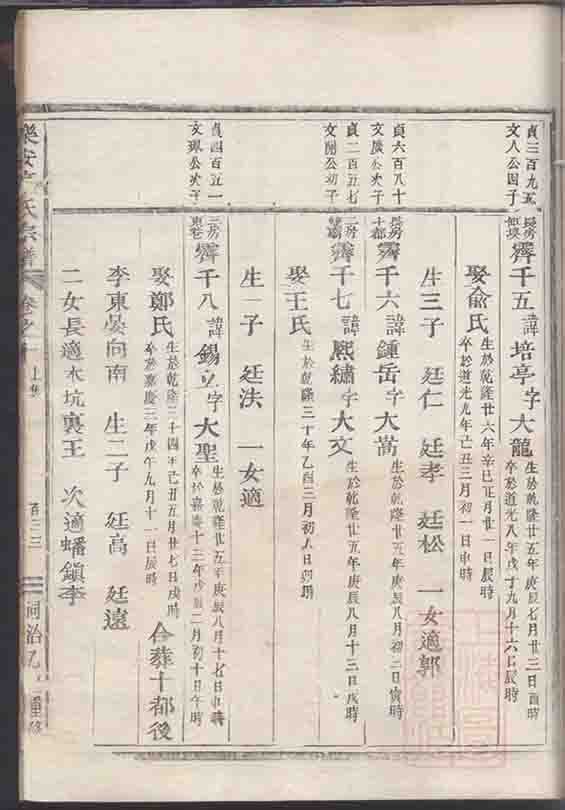 貞三百九五
文人公四子
長房
霽千五諱培亭字大龍
生於乾隆廿五年庚辰七月廿三日酉時
卒於道光八年戊子九月十六日辰時
娶俞氏
生於乾隆廿六年辛巳正月廿一日辰時
卒於道光九年己丑三月初一日申時
生三子 廷仁 廷孝 廷松 一女適郭
貞六百八十
文廣公次子
長房
十都
霽千六諱鍾岳字大嵩
生於乾隆廿五年庚辰八月初二日寅時
貞二百五七
文開公初子
二房
霽千七諱熙繡字大文
生於乾隆廿五年庚辰八月十三日戌時
娶王氏
生於乾隆三十年乙酉三月初八日卯時
生一子 廷法 一女適
貞四百五一
文現公次子
三房
東巷
霽千八諱錫立字大聖
生於乾隆廿五年庚辰八月十七日申時
卒於嘉慶十三年戊辰二月初十日午時
娶鄭氏
生於乾隆三十四年己丑五月廿七日戌時
卒於嘉慶三年戊午九月十一日辰時
合葬十都後
李東晏向南 生二子 廷高 廷遠
二女長適木坑裏王 次適蟠鎮李
樂安 氏宗譜
卷之
上集
百三三
同治乙
重修